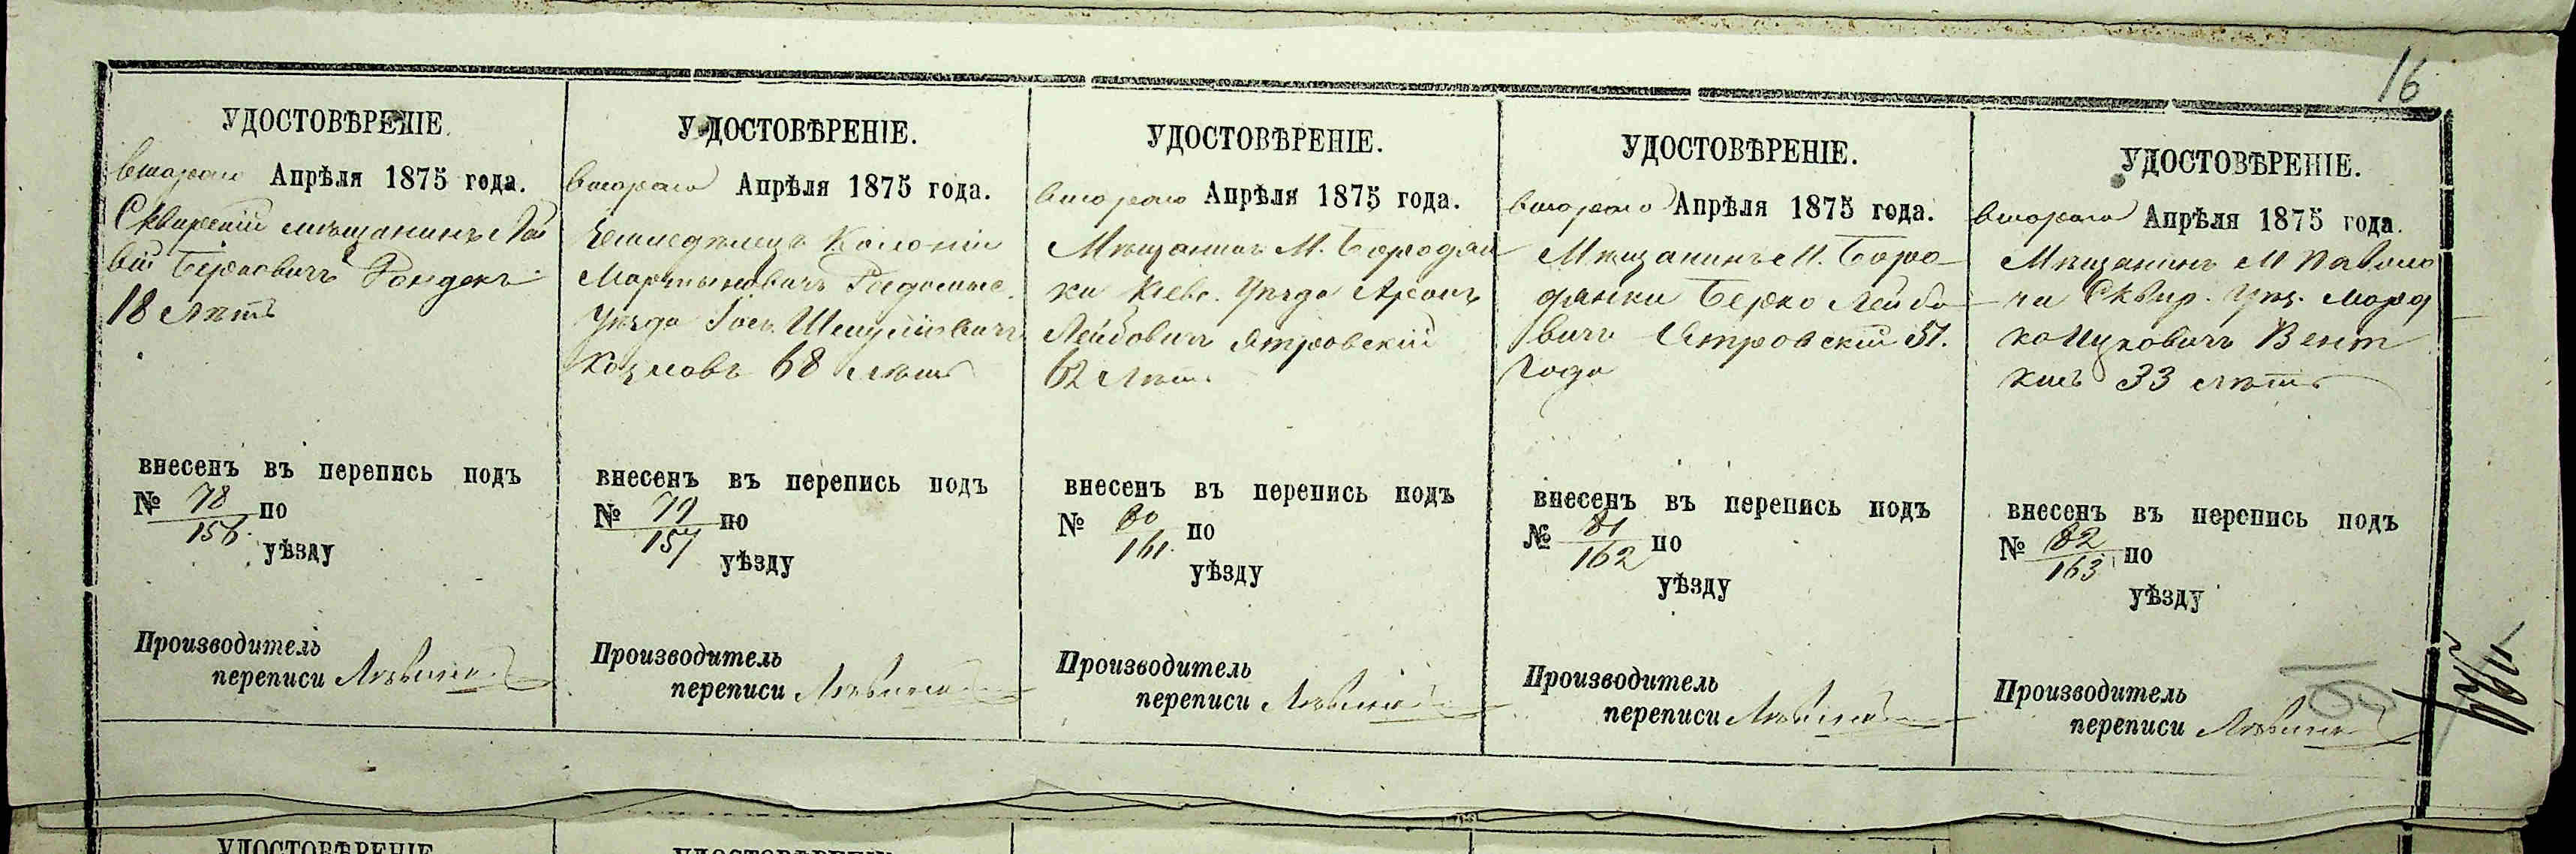 16
УДОСТОВѢРЕНІЕ.
втораго Апрѣля 1875 года.
Сквирскій мѣщанинъ
Берковичъ
18 лѣтъ
внесенъ въ перепись подъ
№ 78 по
156 уѣзду
Производитель
переписи
УДОСТОВѢРЕНІЕ.
втораго Апрѣля 1875 года.
Земледѣлецъ Колоніи
Мартыновичъ Радомыс.
Уѣзда Іось Шмулiовичъ
Козловъ 68 лѣтъ
внесенъ въ перепись подъ
№ 79 по
157 уѣзду
Производитель
переписи
УДОСТОВѢРЕНІЕ.
втораго Апрѣля 1875 года.
Мѣщанинъ М. Бородян
ки Кіевс. Уѣзда Аронъ
Лейбовичъ Ятровскій
62 лѣтъ
внесенъ въ перепись подъ
№ 80 по
161 уѣзду
Производитель
переписи
УДОСТОВѢРЕНІЕ.
втораго Апрѣля 1875 года.
Мѣщанинъ М. Боро-
дянки Берко Лейбо
вичъ Ятровскій 51.
года
внесенъ въ перепись подъ
№ 81 по
162 уѣзду
Производитель
переписи
УДОСТОВѢРЕНІЕ.
втораго Апрѣля 1875 года.
Мѣщанинъ М Паволо
чи Сквир. Уѣз. Морд
ко Ицковичъ
33 лѣтъ
внесенъ въ перепись подъ
№ 82 по
163 уѣзду
Производитель
переписи
УДОСТОВѢРЕНІЕ